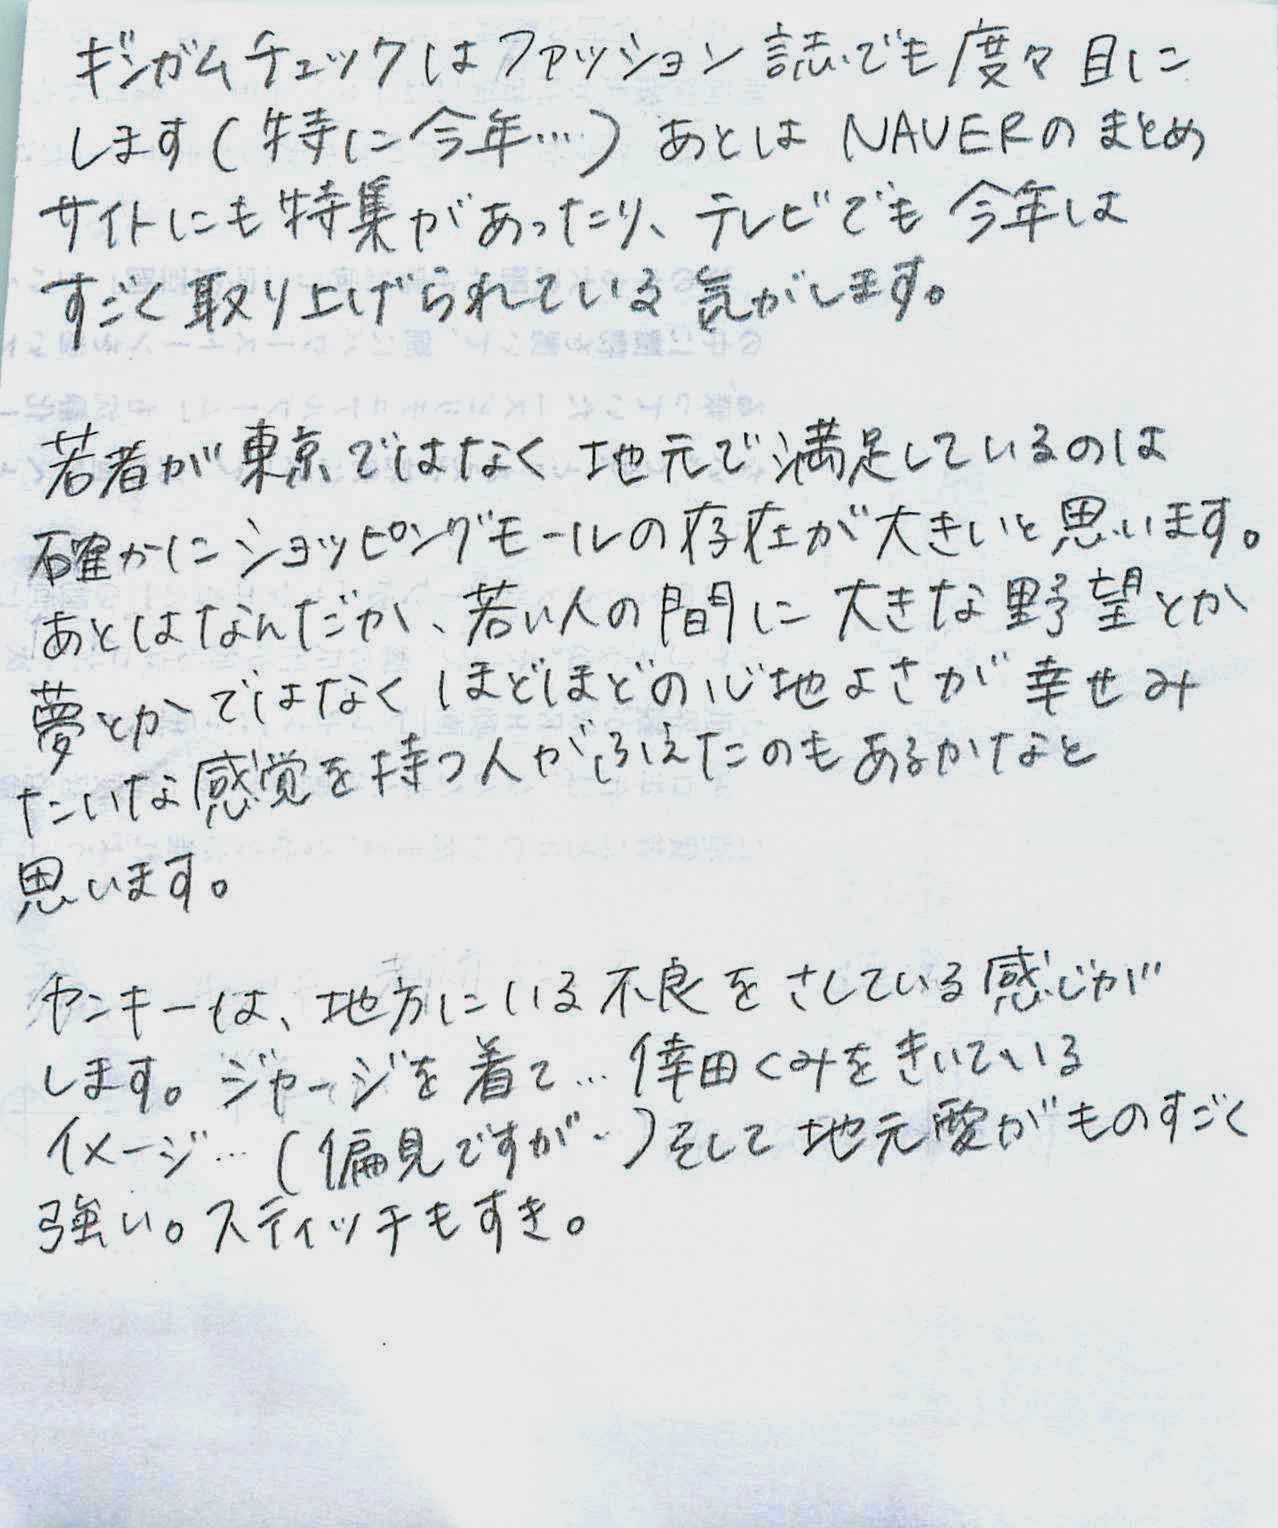 ギンガムチェックはファッション誌でも度々目に
します(特に今年…) あとは NAVERのまとめ
サイトにも特集があったり、テレビでも今年は
すごく取り上げられている気がします。
若者が東京ではなく地元で満足しているのは
確かにショッピングモールの存在が大きいと思います。
あとはなんだか、若い人の間に大きな野望とか
夢とかではなくほどほどの心地よさが幸せみ
たいな感覚を持つ人がふえたのもあるかなと
思います。
ヤンキーは、地方にいる不良をさしている感じが
します。ジャージを着て…倖田くみをきいている
イメージ…(偏見ですが…)そして地元愛がものすごく
強い。スティッチもすき。